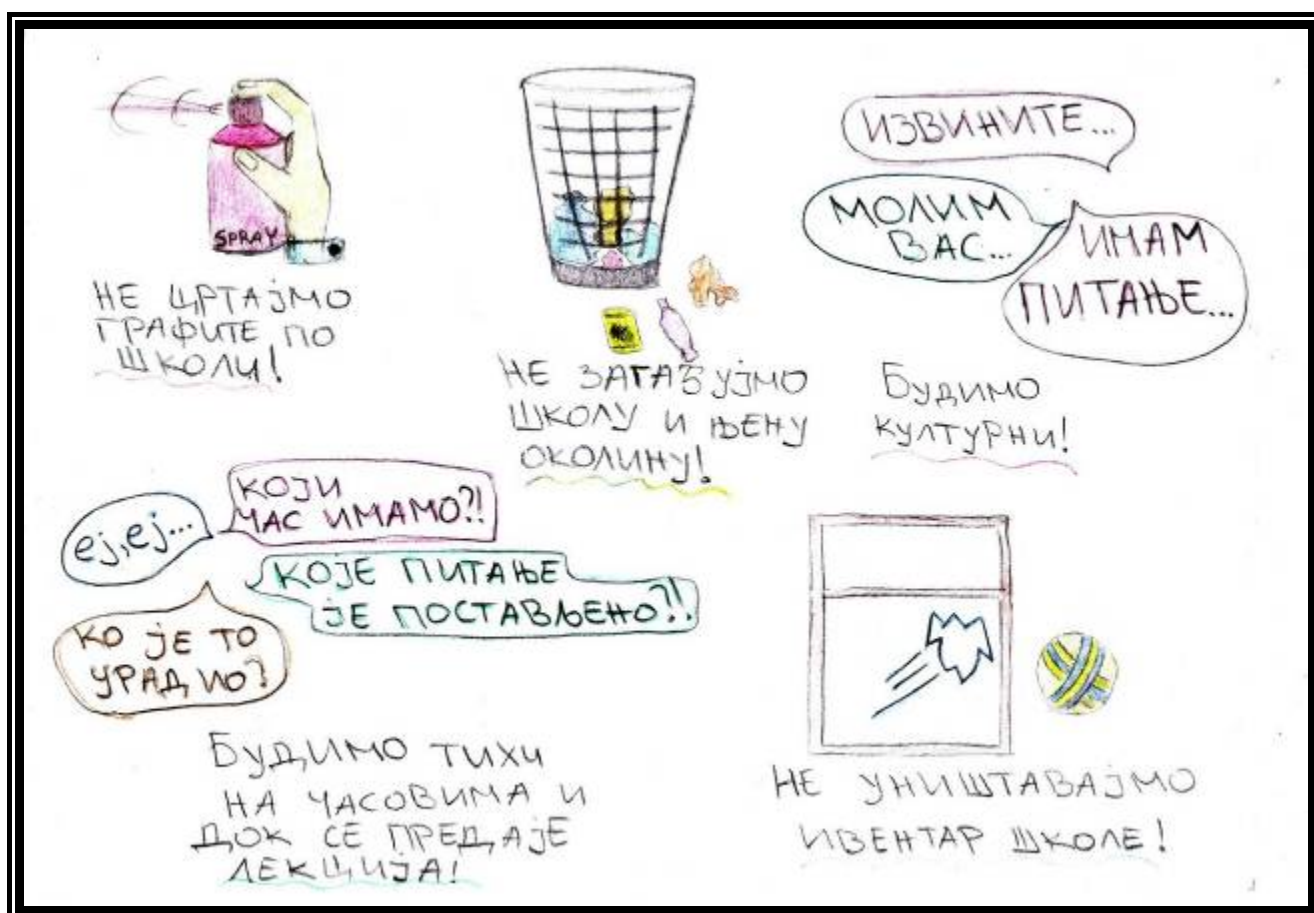 SPRAY
НЕ ЦРТАЈМО
ГРАФИТЕ ПО
ШКОЛИ!
НЕ ЗАГАЂУЈМО
ШКОЛУ И ЊЕНУ
ОКОЛИНУ!
ИЗВИНИТЕ...
МОЛИМ
ВАС...
ИМАМ
ПИТАЊЕ...
БУДИМО
КУЛТУРНИ!
еј, еј...
КОЈИ
ЧАС ИМАМО?!
КОЈЕ ПИТАЊЕ
ЈЕ ПОСТАВЉЕНО?!
КО ЈЕ ТО
УРАДИО?
БУДИМО ТИХИ
НА ЧАСОВИМА И
ДОК СЕ ПРЕДАЈЕ
ЛЕКЦИЈА!
НЕ УНИШТАВАЈМО
ИВЕНТАР ШКОЛЕ!